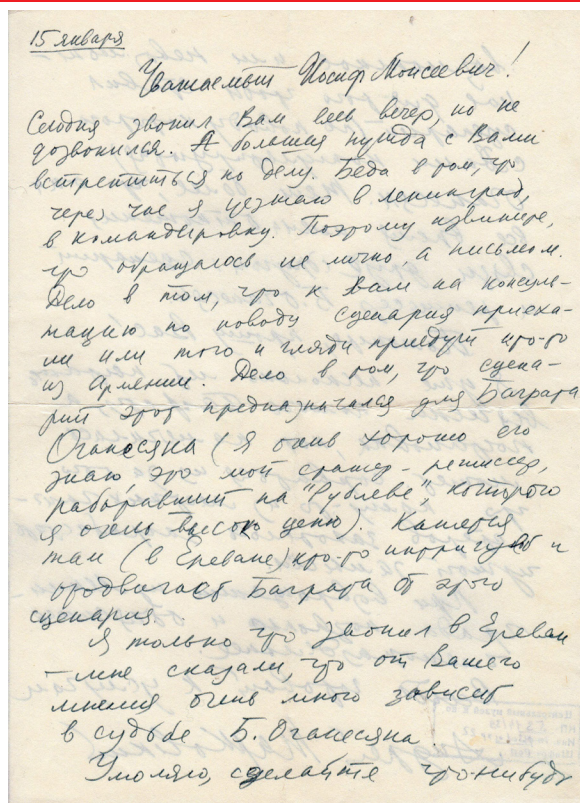 15 января
Уважаемый Иосиф Моисеевич!
Сегодня звонил Вам весь вечер, но не
дозвонился. А большая нужда с Вами
встретиться по делу. Беда в том, что
через час я уезжаю в Ленинград,
в командировку. Поэтому извините,
что обращаюсь не лично, а письмом.
Дело в том, что к Вам на консуль-
тацию по поводу сценария приеха-
ли или того и гляди приедут кто-то
из Армении. Дело в том, что сцена-
рий этот предназначался для Баграта
Оганесяна (Я очень хорошо его
знаю, это мой стажер-режиссер,
работавший на "Рублеве", которого
я очень высоко ценю). Кажется
там (в Ереване) кто-то интригует и
отодвигает Баграта от этого
сценария.
Я только что звонил в Ереван
- мне сказали, что от Вашего
мнения очень много зависит
в судьбе Б. Оганесяна
Умоляю, сделайте что-нибудь